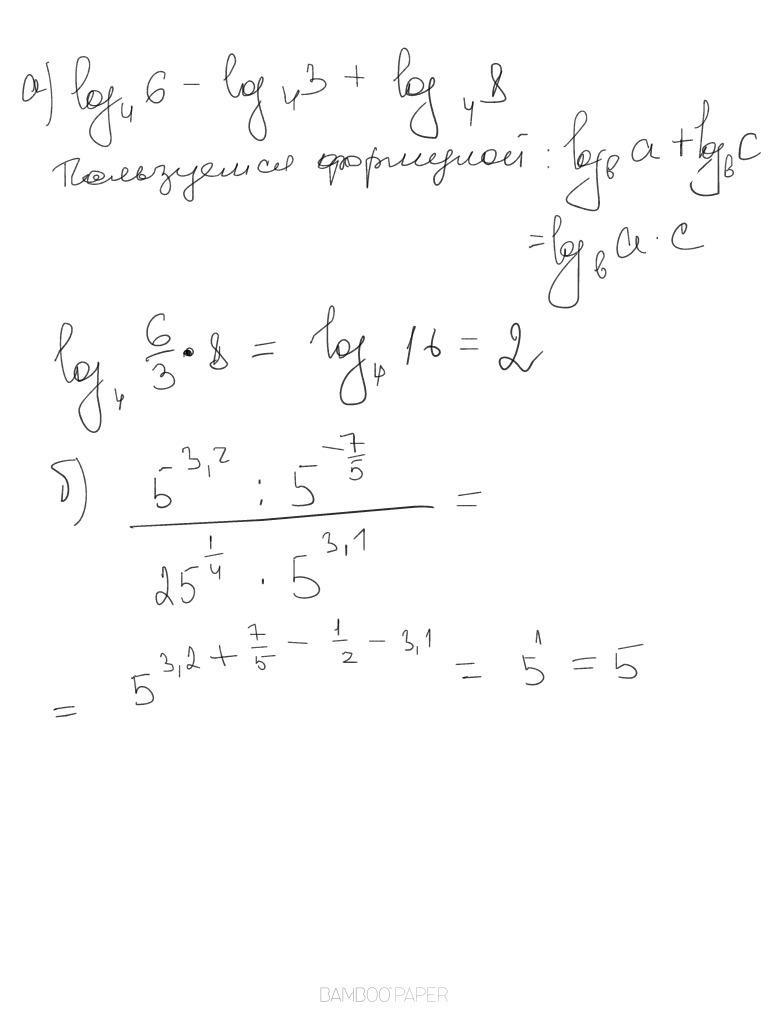 а) log₄6 − log₄3 + log₄8
Пользуемся формулой: log_b a + log_b c
= log_b a · c
log₄ 6/3 · 8 = log₄ 16 = 2
б) (5^3,2 : 5^(−7/5)) / (25^(1/4) · 5^3,1) =
= 5^(3,2 + 7/5 − 1/2 − 3,1) = 5^1 = 5
BAMBOO PAPER